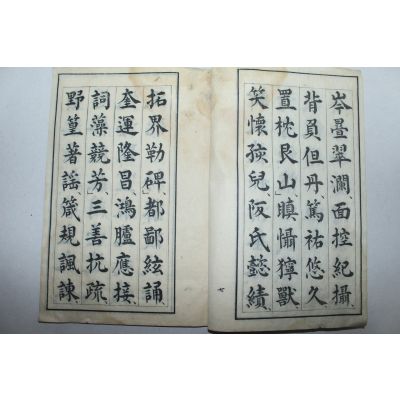 岑疊翠瀾、面控紀攝、
背負但丹、篤祐悠久、
置枕艮山、瞋懾獰獸、
笑懷孩兒、阪氏懿績、
七
拓界勒碑、都鄙絃誦、
奎運隆昌、鴻臚應接、
詞藻競芳、三善抗疏、
野篁著謠、箴規諷諫、